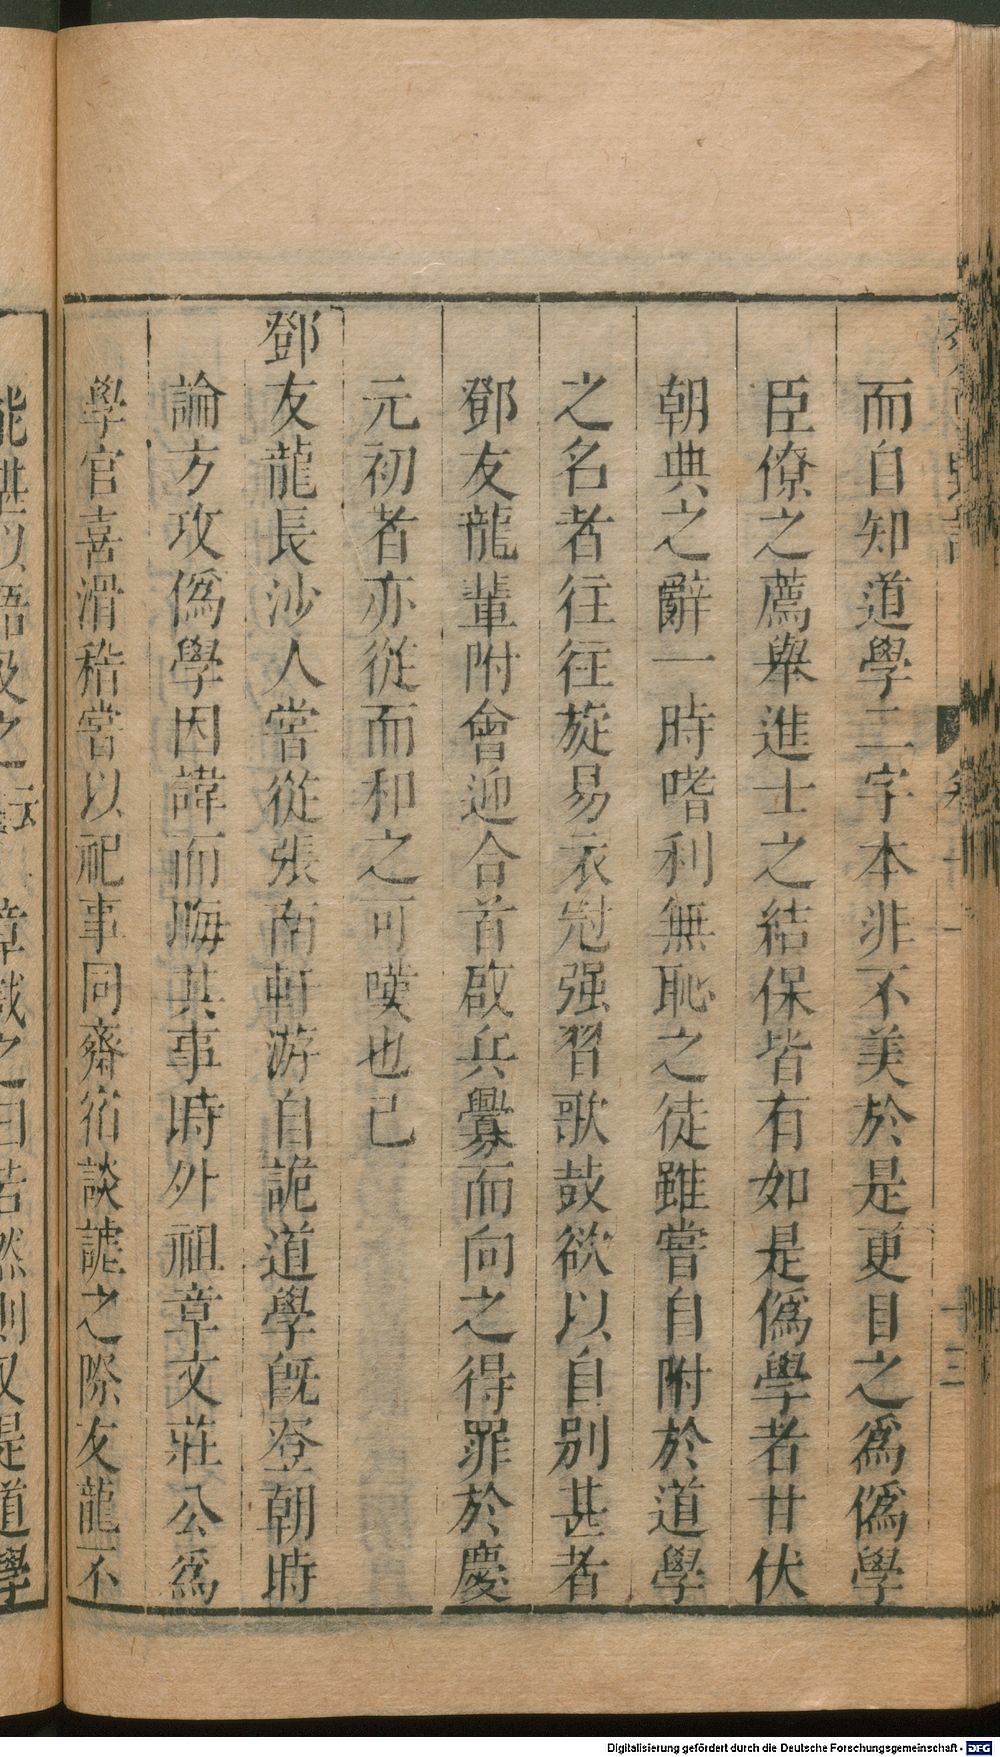 而自知道學二字本非不美於是更目之爲僞學
臣僚之薦舉進士之結保皆有如是僞學者甘伏
朝典之辭一時嗜利無恥之徒雖嘗自附於道學
之名者往往旋易衣冠强習歌鼓欲以自別甚者
鄧友龍輩附會迎合首啟兵釁而向之得罪於慶
元初者亦從而和之可嘆也已
鄧友龍長沙人嘗從張南軒游自詭道學旣登朝時
論方攻僞學因諱而晦其事時外祖章文莊公爲
學官喜滑稽嘗以祀事同齋宿談謔之際友龍不
能堪以語及之 章戲之曰若然則又是道學
Digitalisierung gefördert durch die Deutsche Forschungsgemeinschaft - DFG